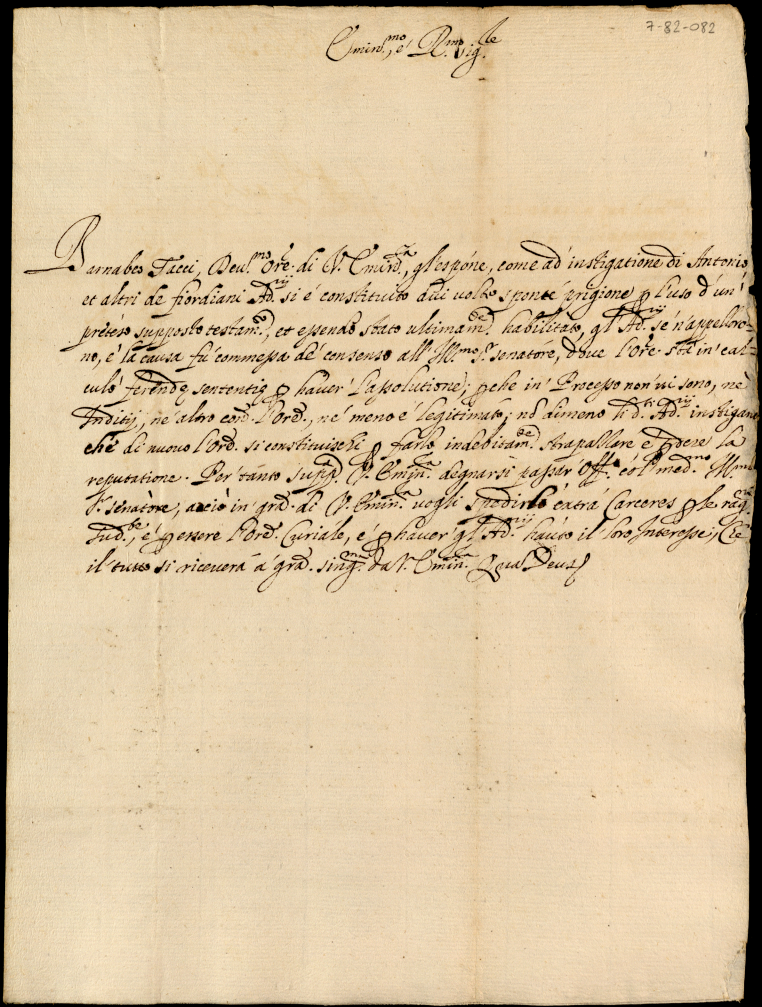 7-82-082
Emin.mo, é R.mo Sig.le
Barnabeo Tacci, Deu.mo Ore. di V. Emin.za, gl'espone, come ad' instigatione di Antonio,
et altri de fiordiani Ad.rij si é constituito due volte sponte prigione p l'uso d'un'
preteso supposto testam.o, et essendo stato ultimam.te habilitato, gl'Ad.rij se n'appelloro-
no, é la causa fú commessa de consenso all' Ill.mo S.r senatore, doue l'Ore. stá in cal-
culo ferende sententie p hauer l'assolutione; pche in' Processo non ui sono, né
Inditij, né altro con. l'Ord., né meno é legitimato; nó dimeno li d.ti Ad.rij instigano
che di nuouo l'Ord. si constituischi p farlo indebitam.te strapallare é pdere la
reputatione. Per tanto supp.ca V. Emin.za degnarsi passar' Off.o có l' med.mo Ill.mo
S.r senatore, acció in' gra. di V. Emin.za uogli spedirlo extrá Carceres p le rag.ni
Sud.te, é p essere l'Ord. Curiale, é p hauer gl'Ad.rij hauto il loro Interesse; Che
il tutto si riceuerá á gra. sing.ma da V. Emin.za Qua Deus